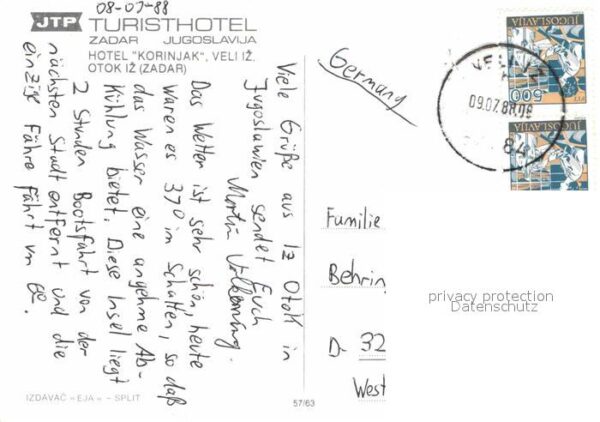 08-07-88
JTP TURISTHOTEL
ZADAR JUGOSLAVIJA
HOTEL "KORINJAK", VELI IŽ.
OTOK IŽ (ZADAR)
Viele Grüße aus Iz Otok in
Jugoslawien sendet Euch
Das Wetter ist sehr schön, heute
waren es 37° im Schatten, so daß
das Wasser eine angehme Ab-
kühlung bietet. Diese Insel liegt
2 Stunden Bootsfahrt von der
nächsten Stadt entfernt und die
einzige Fähre fährt um
IZDAVAČ »EJA« - SPLIT
57/63
Germany
JUGOSLAVIJA
500
PTT
JUGOSLAVIJA
VELI IŽ
09.07.88
Familie
Behring
D- 32
West
privacy protection
Datenschutz